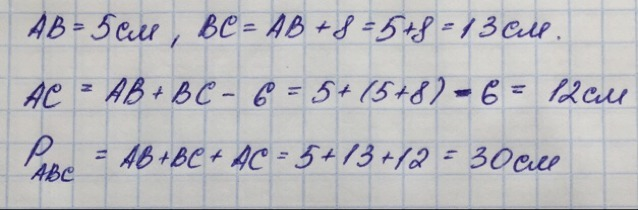 AB = 5см, BC = AB + 8 = 5+8 = 13см.
AC = AB + BC - 6 = 5 + (5+8) - 6 = 12см
P_ABC = AB+BC+AC = 5+13+12 = 30см